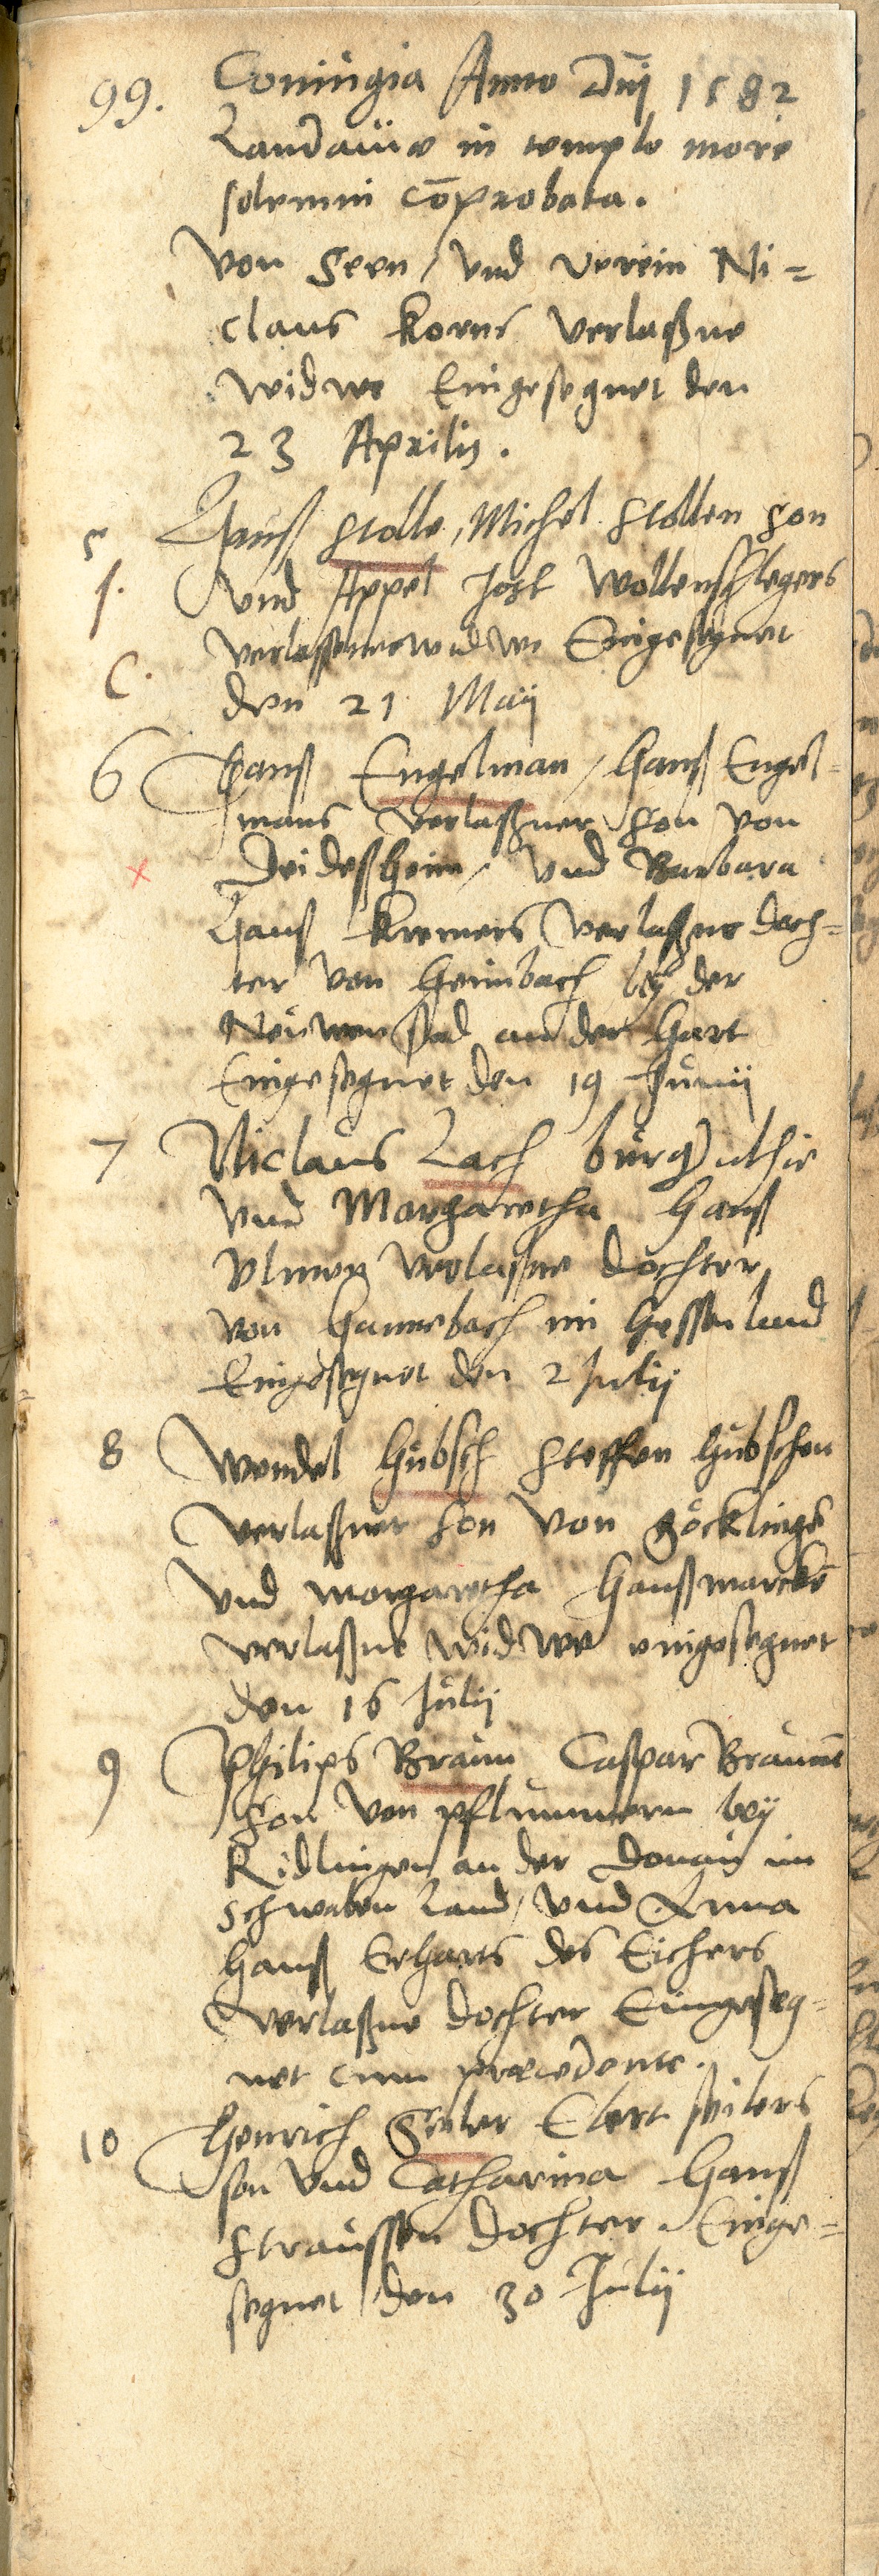 99. Coniugia Anno Dnj 1582
Landauiæ in templo more
solemni cōprobata.
von Seen / vnd Verein Ni=
claus Korns verlaßne
widwe Eingesegnet den
23 Aprilis.
5 Hanß Stolle, Michel Stollen son
f. vnd Appel Jost Wollenschlegers
verlaßene widwe Eingesegnet
C. den 21 Maij
6 Hanß Engelman / Hanß Engel=
mans verlaßner son von
Deideßheim / vnd Barbara
Hanß Kremers verlaßne doch=
ter von Heimbach bÿ der
Neuwenstad an der Hart
Eingesegnet den 19 Junij
7 Niclaus Lach burg) alhie
vnd Margaretha Hanß
Vlmer verlaßne dochter
von Hannebach im Hessenland
Eingesegnet den 2 Julij
8 Wendel Hübsch Steffen Hübschen
verlaßner son von Göcklingē
vnd margaretha Hanß marckē
verlaßne widwe eingesegnet
den 16 Julij
9 Philips Braun Caspar Braunē
son von pflummern bÿ
Ridlingen an der Donau im
schwaben Land / vnd Anna
Hanß Erharts des Eichers
verlaßne dochter Eingeseg=
net cum præcedente.
10 Henrich Seiler Ebert seilers
son vnd Catharina Hanß
Straussen dochter. Einge=
segnet den 30 Julij